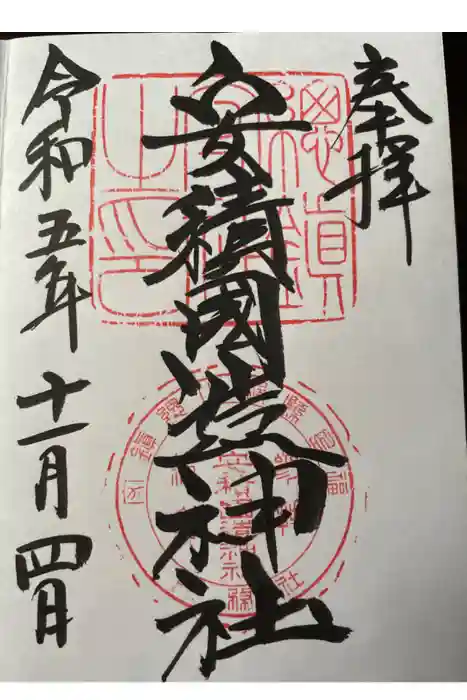 奉拝
安積國造神社
令和五年十一月四日